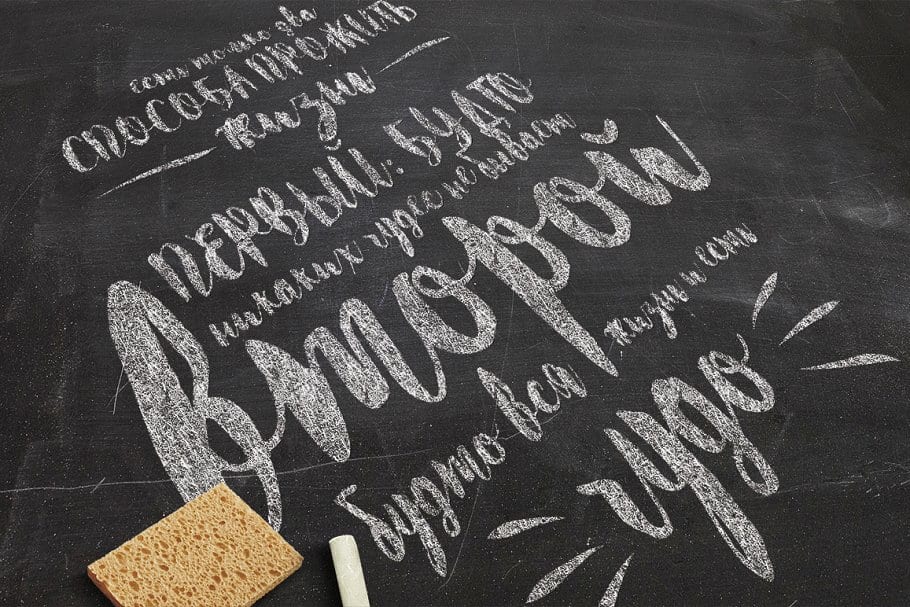 есть только два
СПОСОБА ПРОЖИТЬ
жизнь
ПЕРВЫЙ: БУДТО
никаких чудес не бывает
второй
будто вся жизнь и есть
чудо